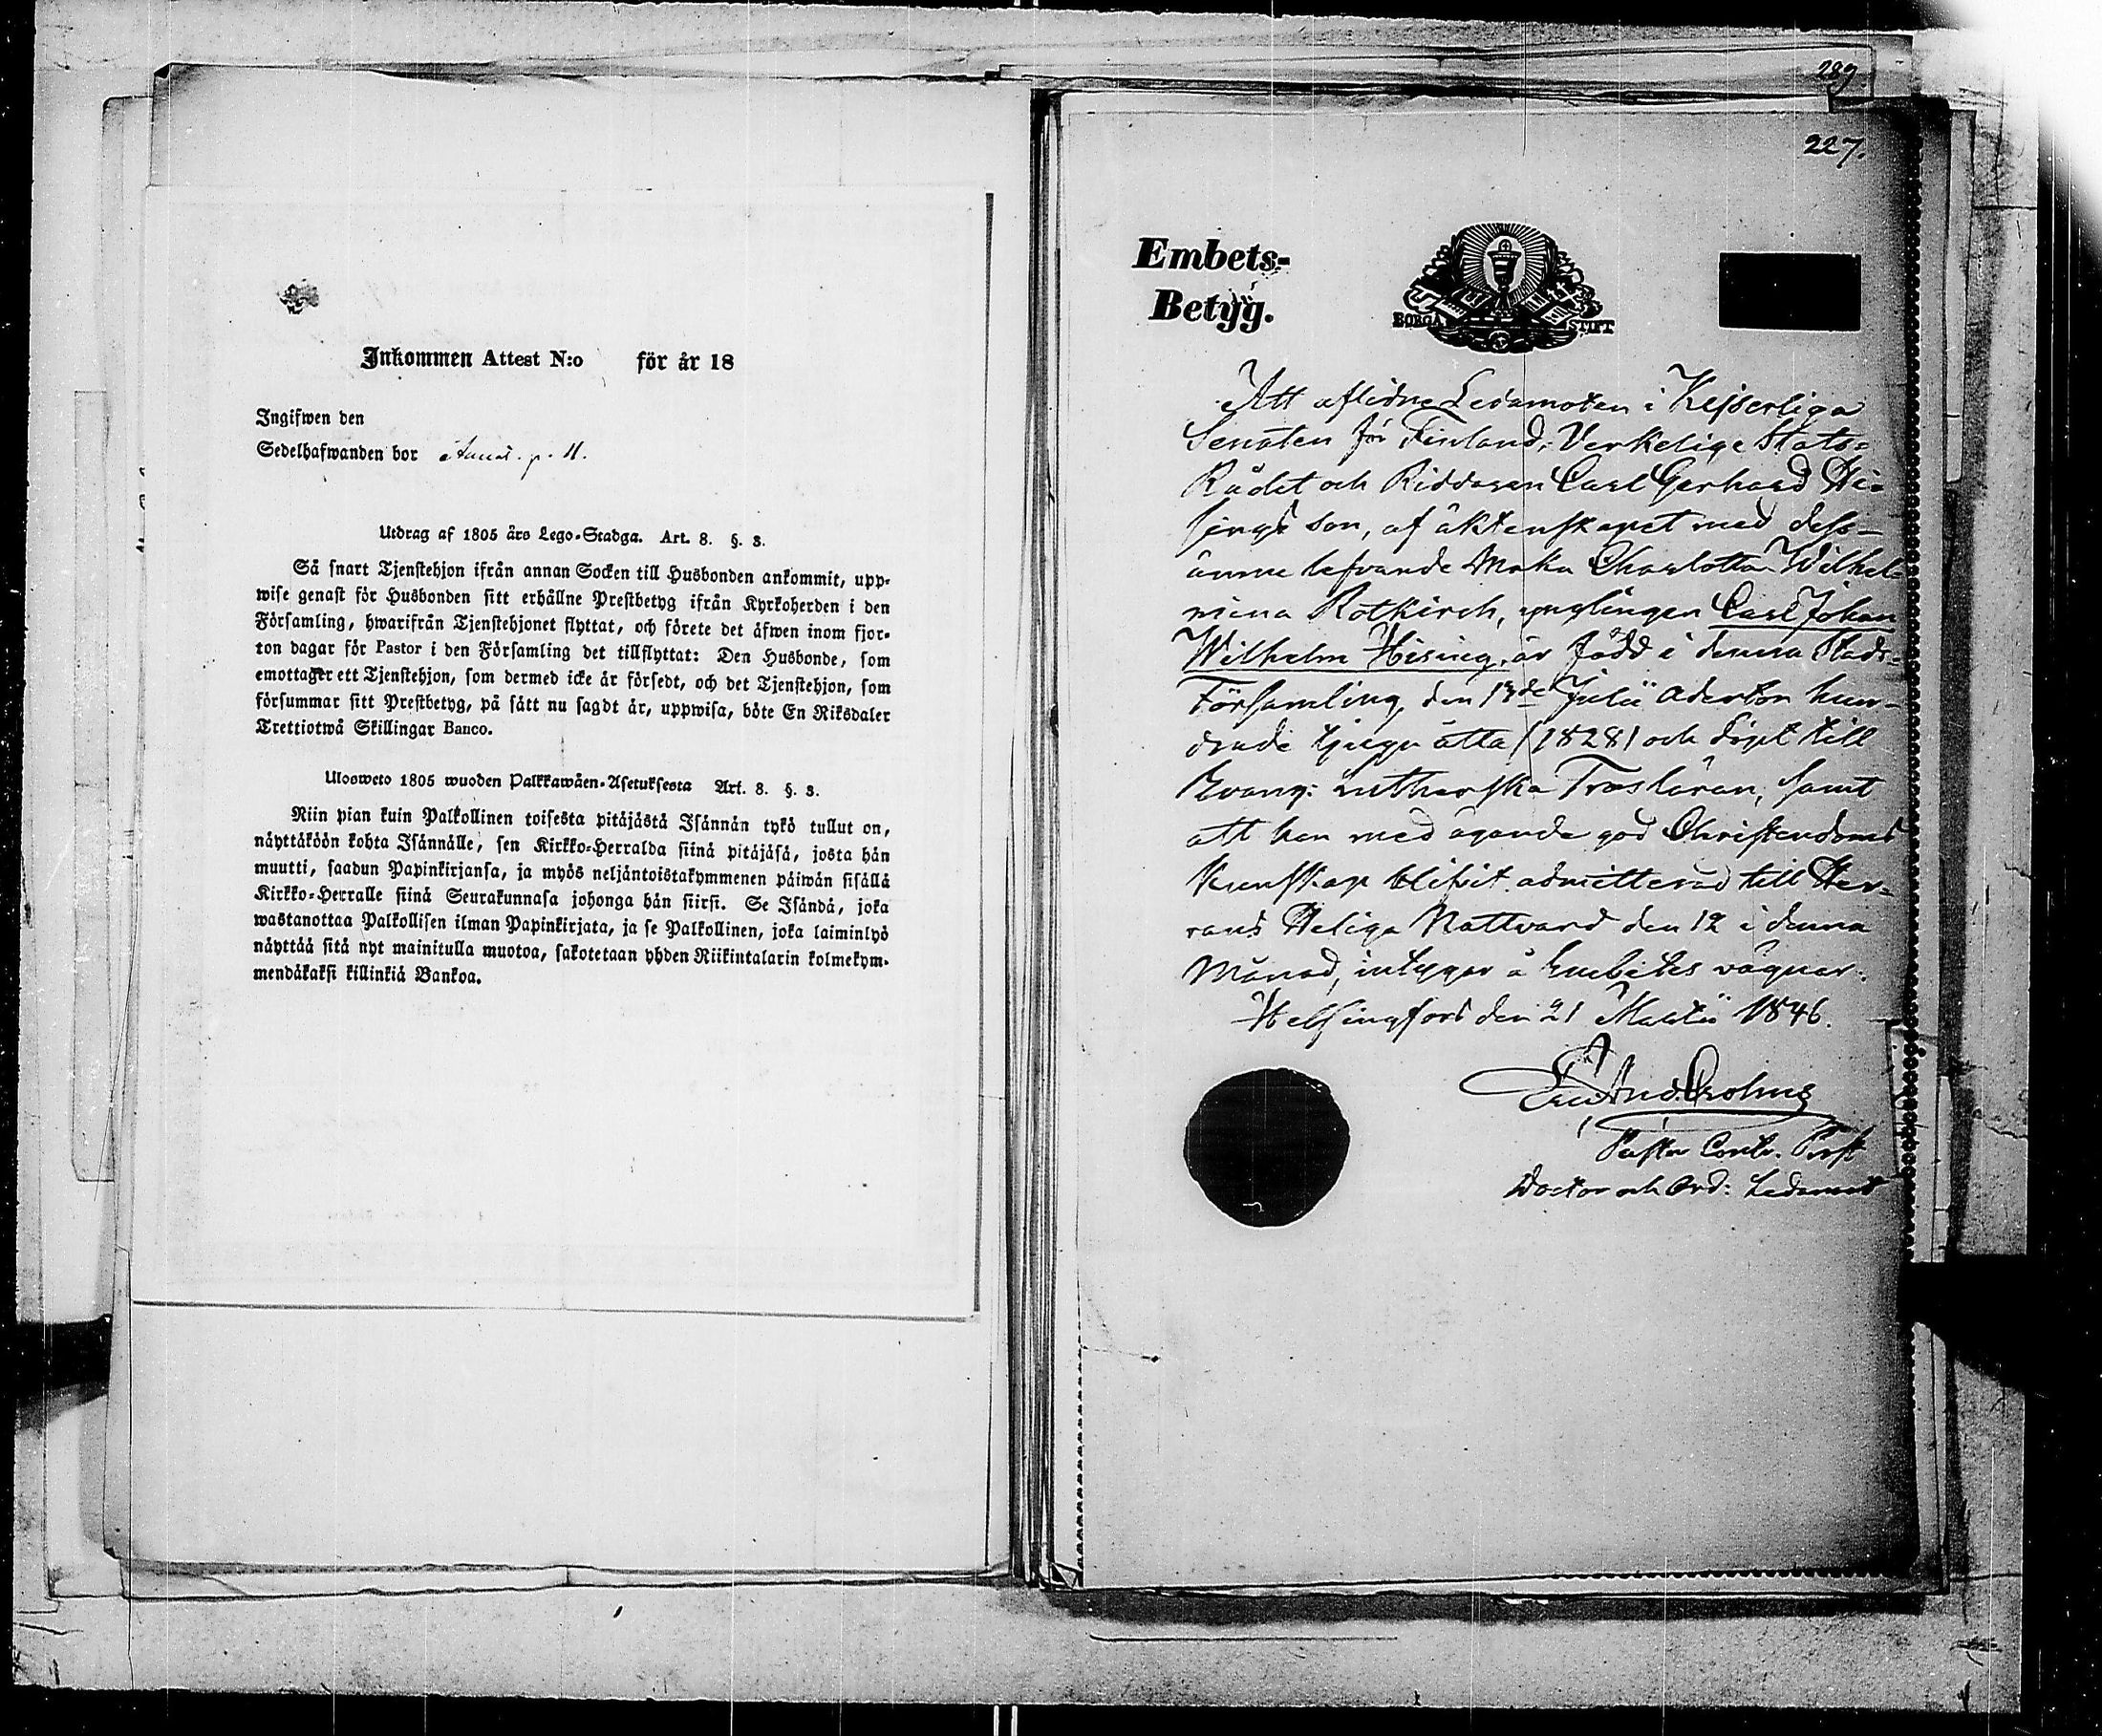 Inkommen Attest N:o för år 18
Ingifwen den
Sedelhafwanden bor
Utdrag af 1805 års Lego-Stadga. Art. 8. §. 3.
Så snart Tjenstehjon ifrån annan Socken till Husbonden ankommit, upp-
wise genast för Husbonden sitt erhållne Prestbetyg ifrån Kyrkoherden i den
Församling, hwarifrån Tjenstehjonet flyttat, och förete det äfwen inom fjor-
ton dagar för Pastor i den Församling det tillflyttat: Den Husbonde, som
emottager ett Tjenstehjon, som dermed icke är försedt, och det Tjenstehjon, som
försummar sitt Prestbetyg, på sätt nu sagdt är, uppwisa, böte En Riksdaler
Trettiotwå Skillingar Banco.
Ulosweto 1805 wuoden Palkkawäen-Asetuksesta Art. 8. §. 3.
Niin pian kuin Palkollinen toisesta pitäjästä Isännän tykö tullut on,
näyttäköön kohta Isännälle, sen Kirkko-Herralda siinä pitäjäsä, josta hän
muutti, saadun Papinkirjansa, ja myös neljäntoistakymmenen päiwän sisällä
Kirkko-Herralle siinä Seurakunnasa johonga hän siirsi. Se Isändä, joka
wastanottaa Palkollisen ilman Papinkirjata, ja se Palkollinen, joka laiminlyö
näyttää sitä nyt mainitulla muotoa, sakotetaan yhden Riikintalarin kolmekym-
mendäkaksi killinkiä Bankoa.
289.
227.
Embets-
Betyg.
BORGÅ STIFT
Att aflidne Ledamoten i Kejserliga
Senaten för Finland, Verkelige Stats-
Rådet och Riddaren Carl Gerhard Hi-
sings son, af äktenskapet med dess
ännu lefvande Maka Charlotta Wilhel-
mina Rotkirch, ynglingen Carl Johan
Wilhelm Hising, är född i denna Stads-
Församling, den 13de Julii Aderton hun-
drade tjugu åtta (1828) och döpt till
Evang: Lutherska Trosläran, samt
att han med ägande god Christendoms
kunskap blifvit admitterad till Her-
rans Heliga Nattvard den 12 i denna
Månad, intygar å Embetes vägnar.
Helsingfors den 21 Martii 1846.
And. Crohns
Pastor Contr. Prost
Doctor och Ord: Ledamot